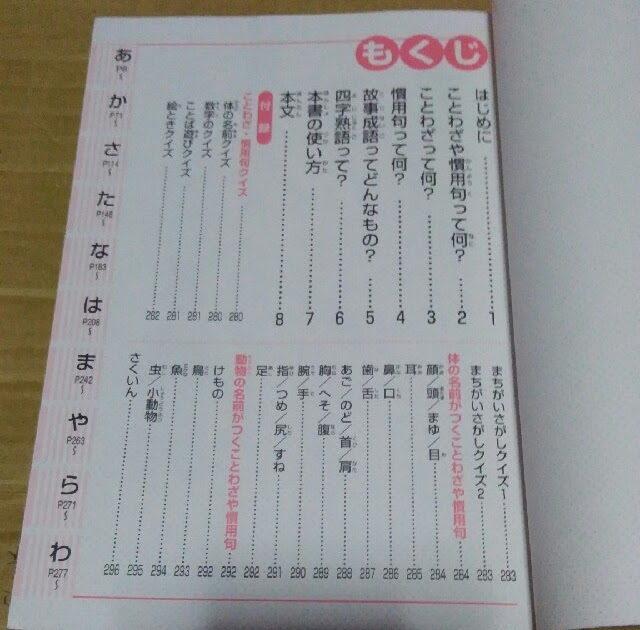 もくじ
はじめに 1
ことわざや慣用句って何? 2
ことわざって何? 3
慣用句って何? 4
故事成語ってどんなもの? 5
四字熟語って? 6
本書の使い方 7
本文 8
付録
ことわざ・慣用句クイズ 280
体の名前クイズ 280
数字のクイズ 281
ことば遊びクイズ 281
絵ときクイズ 282
まちがいさがしクイズ1 283
まちがいさがしクイズ2 283
体の名前がつくことわざや慣用句 284
顔/頭/まゆ/目 284
耳 285
鼻/口 286
歯/舌 287
あご/のど/首/肩 288
胸/へそ/腹 289
腕/手 290
指/つめ/尻/すね 291
足 292
動物の名前がつくことわざや慣用句 292
けもの 292
鳥 293
魚 294
虫/小動物 295
さくいん 296
あ
か P71〜
さ P114〜
た P146〜
な P183〜
は P208〜
ま P242〜
や P263〜
ら P271〜
わ P277〜